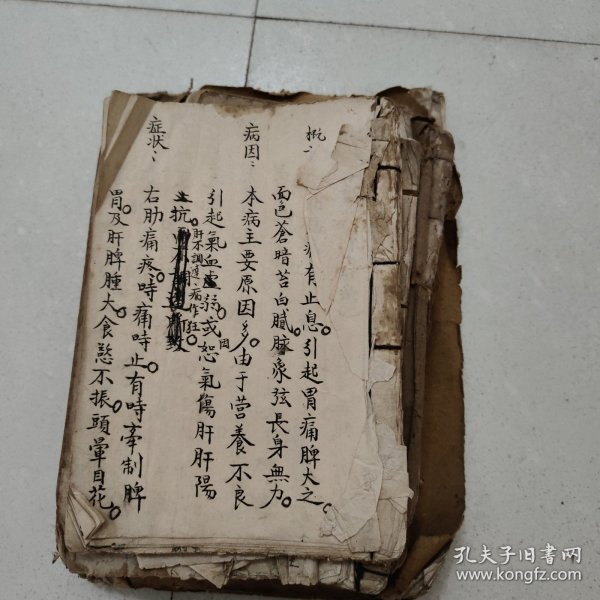 概、
有止息。引起胃痛脾大之
面色蒼暗苔白膩。脉象弦長身無力。
病因：
本病主要原因多。由于营養不良
引起氣血虚弱。或因怒氣傷肝肝陽
上抗
肝不調達。病作狂。
症状：
右肋痛疼。時痛時止。有時牽制脾
胃。及肝脾腫大。食慾不振。頭暈目花。
孔夫子旧书网
www.kongfz.com